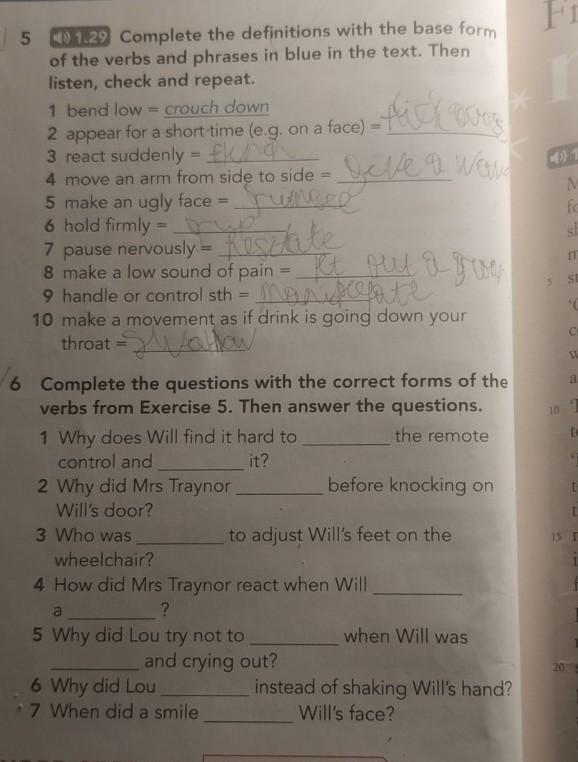 5 1.29 Complete the definitions with the base form
of the verbs and phrases in blue in the text. Then
listen, check and repeat.
1 bend low = crouch down
2 appear for a short time (e.g. on a face) =
3 react suddenly =
4 move an arm from side to side = Give a
5 make an ugly face =
6 hold firmly = grip
7 pause nervously = hesitate
8 make a low sound of pain = let out a
9 handle or control sth =
10 make a movement as if drink is going down your
throat = Swallow
6 Complete the questions with the correct forms of the
verbs from Exercise 5. Then answer the questions.
1 Why does Will find it hard to ________ the remote
control and ________ it?
2 Why did Mrs Traynor ________ before knocking on
Will's door?
3 Who was ________ to adjust Will's feet on the
wheelchair?
4 How did Mrs Traynor react when Will ________
a ________ ?
5 Why did Lou try not to ________ when Will was
________ and crying out?
6 Why did Lou ________ instead of shaking Will's hand?
7 When did a smile ________ Will's face?
5
10
15
20